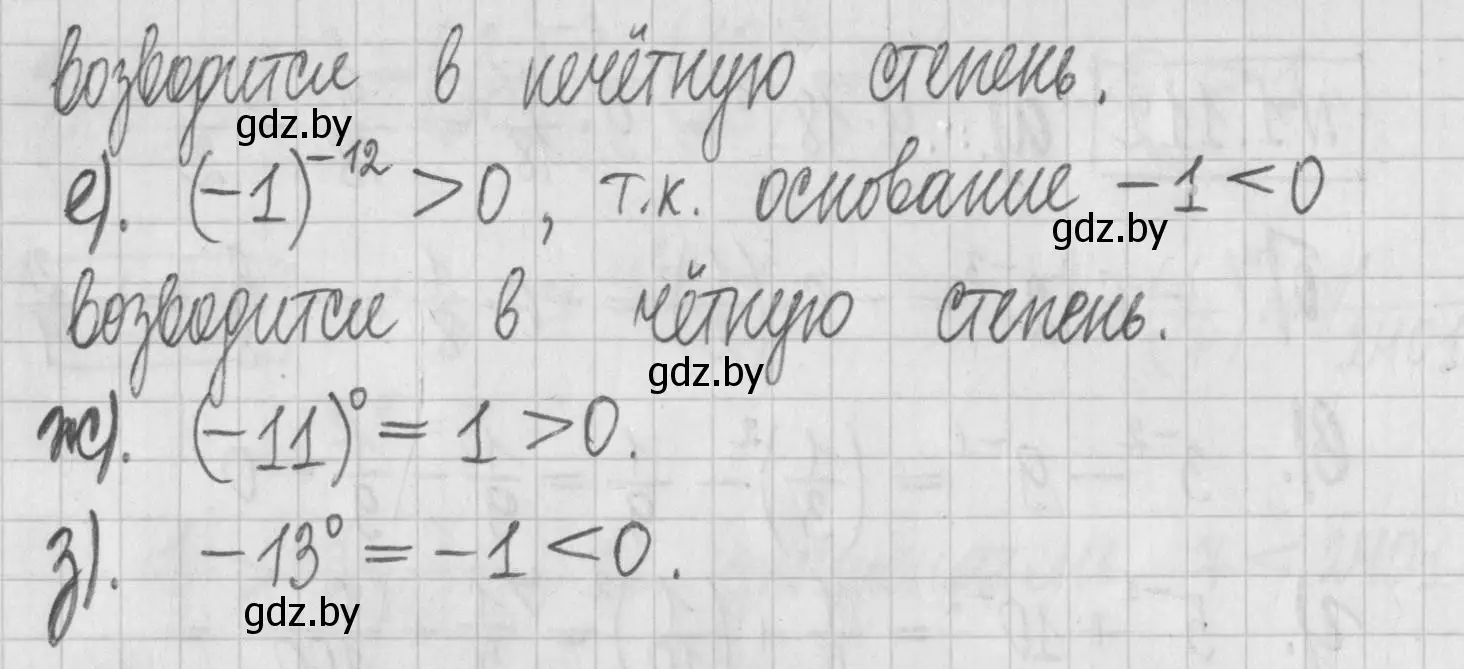 возводится в нечётную степень.
gdz.by
е). (-1)⁻¹² > 0, т.к. основание -1 < 0
gdz.by
возводится в чётную степень.
gdz.by
ж). (-11)⁰ = 1 > 0.
з). -13⁰ = -1 < 0.
gdz.by